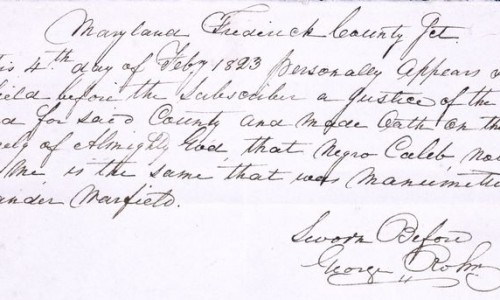 Maryland Frederick County Jct.
is 4th day of Feby 1823 Personally Appears
field before the Subscriber a Justice of the
for said County and made Oath on the
ely of Almighty God, that Negro Caleb, now
me, is the same that was manumitte
ander Warfield.
Sworn Before
George Rohr